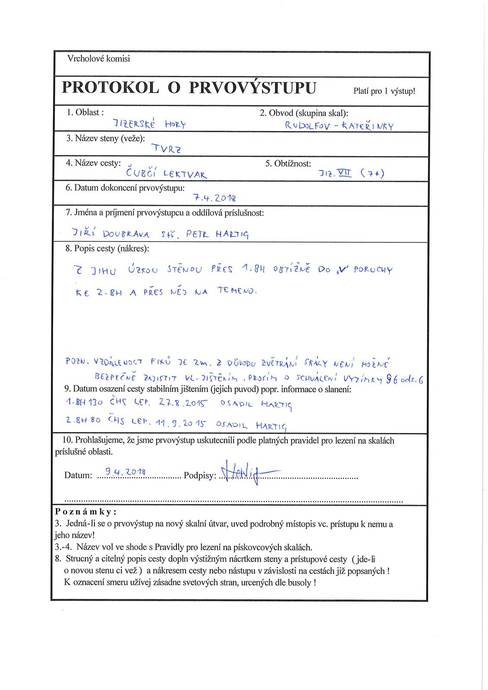 Vrcholové komisi
PROTOKOL O PRVOVÝSTUPU Platí pro 1 výstup!
1. Oblast : 2. Obvod (skupina skal):
JIZERSKÉ HORY RUDOLFOV - KATEŘINKY
3. Název steny (veže):
TVRZ
4. Název cesty: 5. Obtížnost:
ČUBČÍ LEKTVAR JIZ. VII (7+)
6. Datum dokoncení prvovýstupu:
7.4.2018
7. Jména a príjmení prvovýstupcu a oddílová príslušnost:
JIŘÍ DOUBRAVA PETR HARTIG
8. Popis cesty (nákres):
Z JIHU ÚZKOU STĚNOU PŘES 1.BH OBTÍŽNĚ DO "V" PORUCHY
KE 2.BH A PŘES NĚJ NA TEMENO.
POZN. VZDÁLENOST FIXŮ JE 2m. Z DŮVODU ZVĚTRÁNÍ SKÁLY NENÍ MOŽNÉ
BEZPEČNĚ ZAJISTIT VL. JIŠTĚNÍM. PROSÍM O SCHVÁLENÍ VÝJIMKY §6 odst. 6
9. Datum osazení cesty stabilním jištením (jejich puvod) popr. informace o slanení:
1.BH 130 ČHS LEP. 27.8.2015 OSADIL HARTIG
2.BH 80 ČHS LEP. 11.9.2015 OSADIL HARTIG
10. Prohlašujeme, že jsme prvovýstup uskutecnili podle platných pravidel pro lezení na skalách
príslušné oblasti.
Datum: 9.4.2018 Podpisy:
Poznámky:
3. Jedná-li se o prvovýstup na nový skalní útvar, uved podrobný místopis vc. prístupu k nemu a
jeho název!
3.-4. Název vol ve shode s Pravidly pro lezení na pískovcových skalách.
8. Strucný a citelný popis cesty dopln výstižným nácrtkem steny a prístupové cesty ( jde-li
o novou stenu ci vež ) a nákresem cesty nebo nástupu v závislosti na cestách již popsaných !
K oznacení smeru užívej zásadne svetových stran, urcených dle busoly !